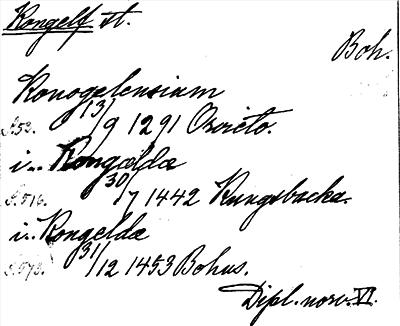 Kongelf st.
Boh.
Konogelensium
S. 53. 13/9 1291 Orvieto.
i.. Kongælda
S. 516. 30/7 1442 Kungsbacka.
i.. Kongelda
S. 573. 31/12 1453 Bohus.
Dipl. norv. VI.